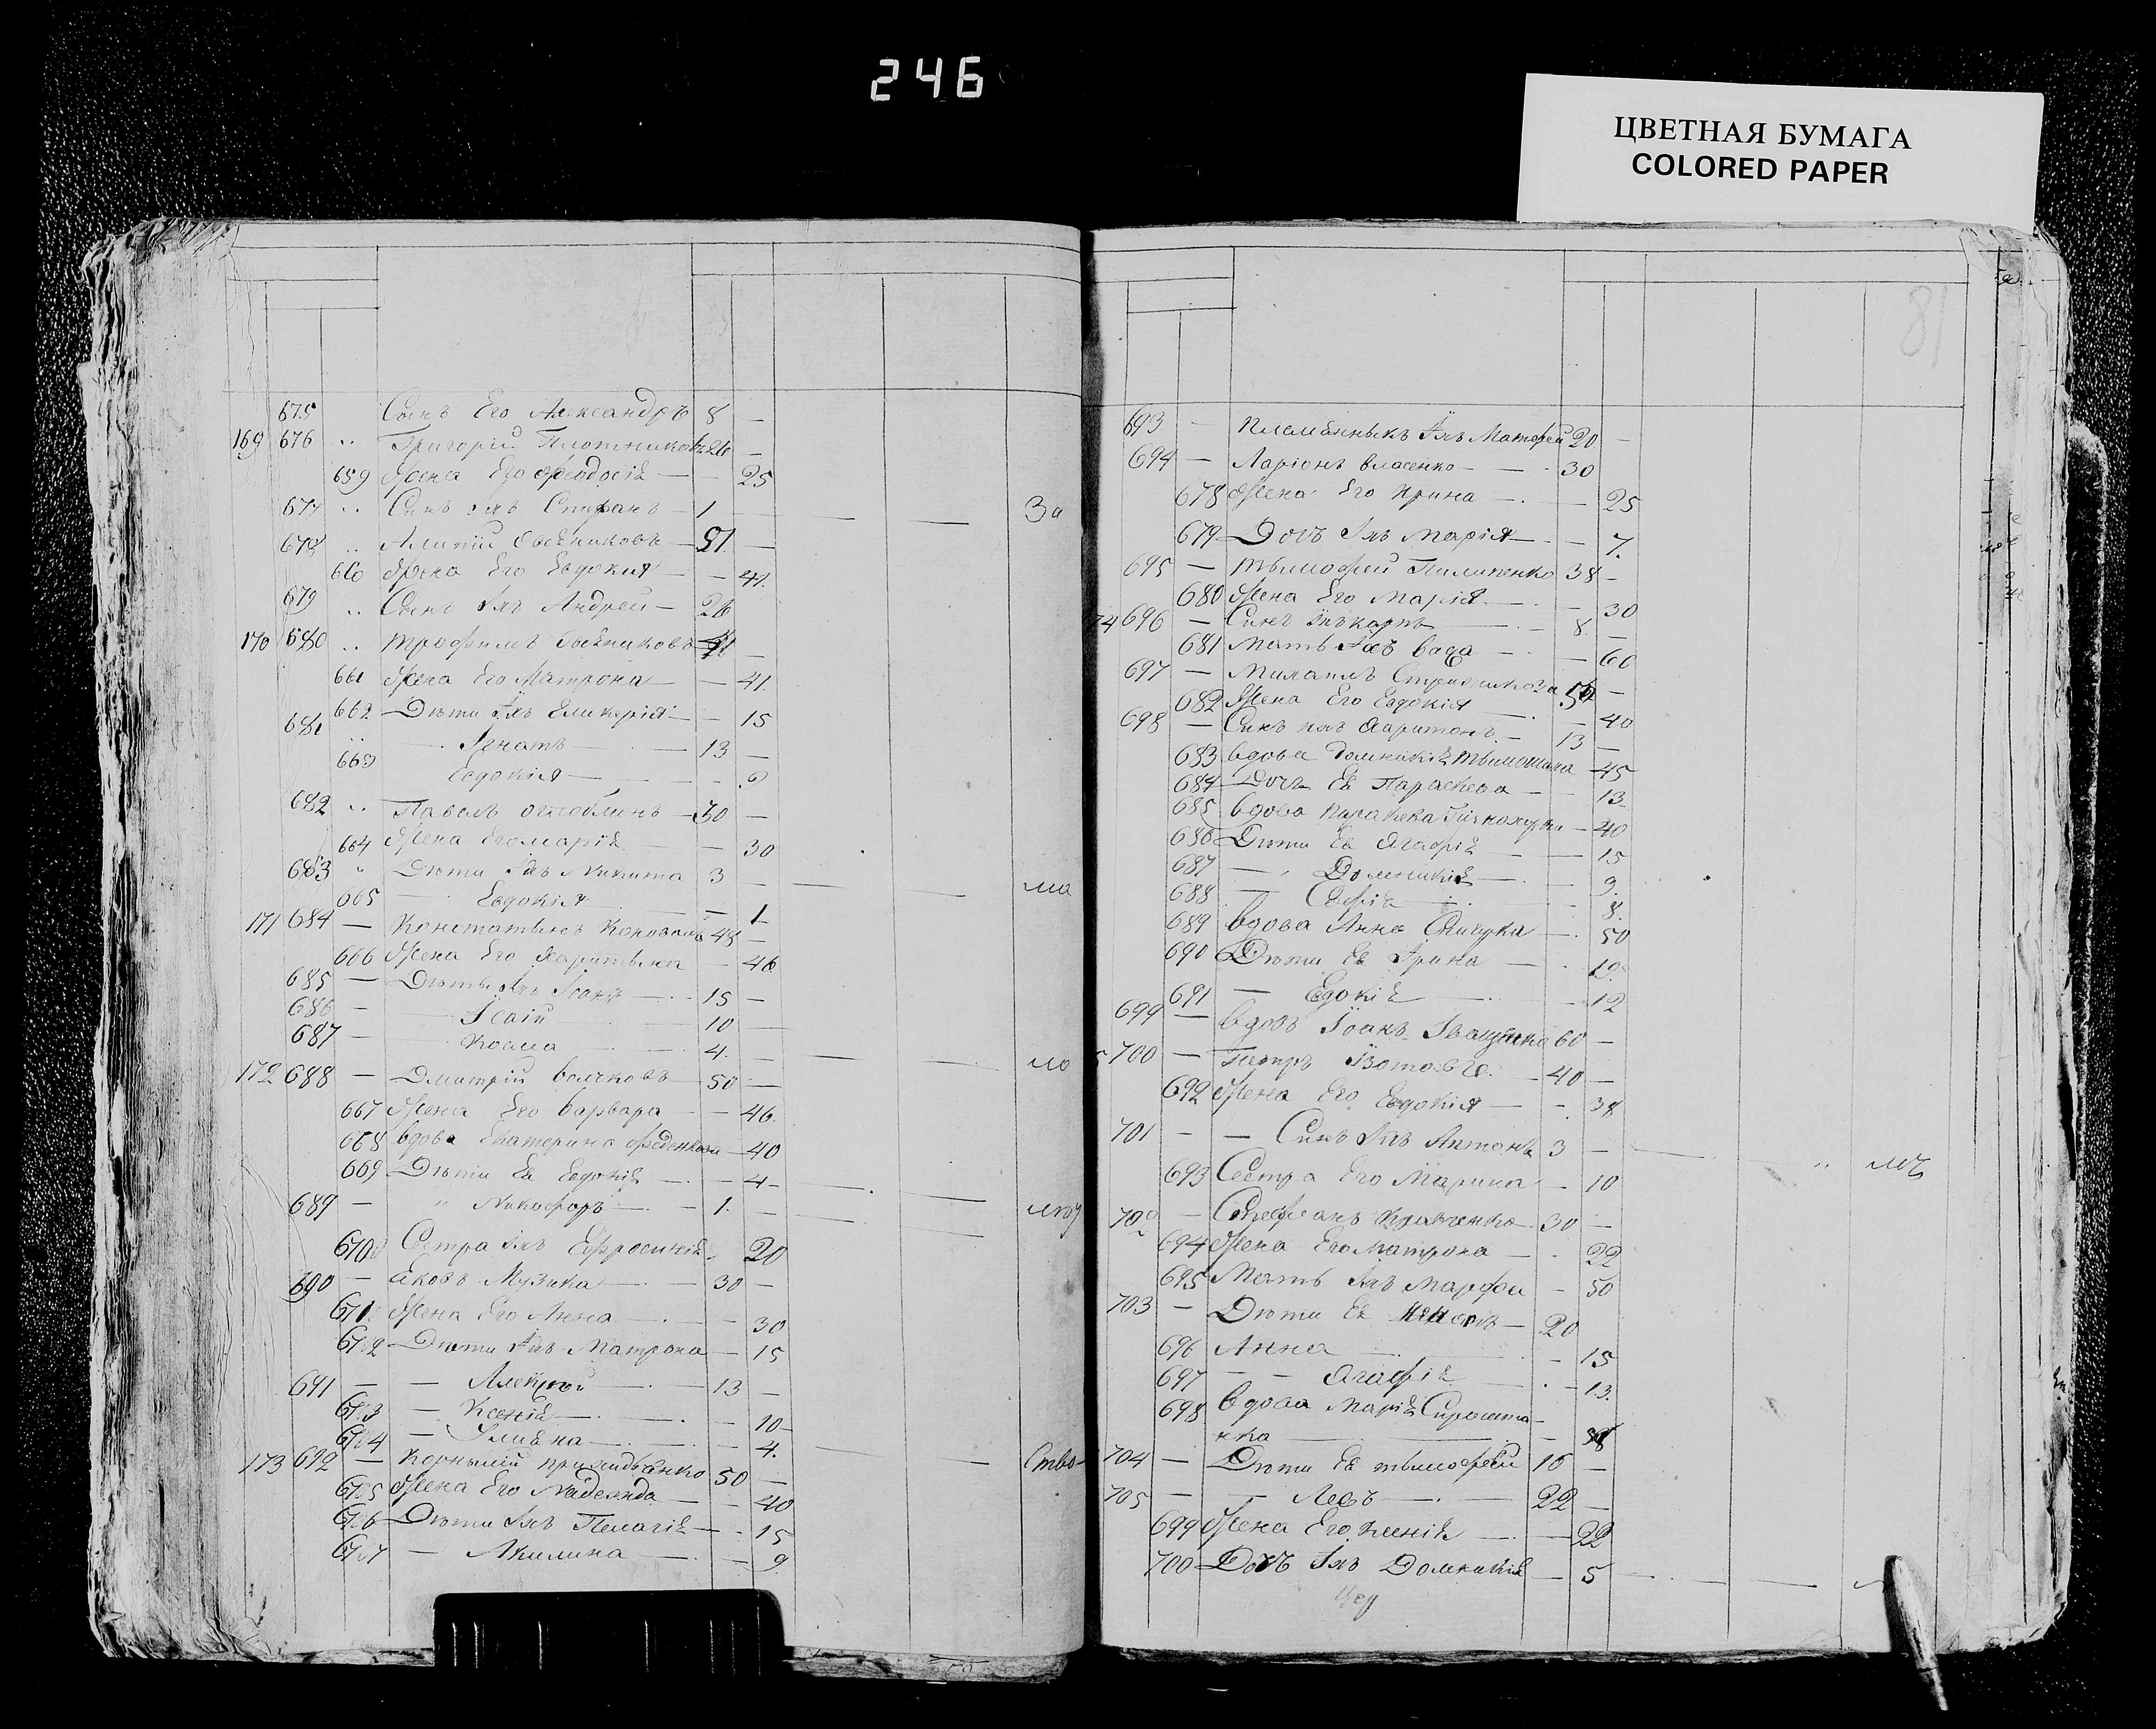 246
ЦВЕТНАЯ БУМАГА
COLORED PAPER
81
675 Сынъ Его Александръ 8 —
169 676 Григорій Плотниковъ 26 —
659 Жена Его Феодосіѣ — 25
677 Синъ Ихъ Стефанъ 1 За
678 51 —
660 Жена Его Евдокия — 41
679 Сынъ Ихъ Андрей — 26
170 680 Трофимъ —
661 Жена Его Матрона — 41
662 Дѣти Іхъ Гликерія — 15
681 Ігнатъ — 13 —
663 Евдокія — 9
682 Павелъ 30 —
664 Жена Его Маріѣ — 30
683 Дѣти Іхъ Никита 3 — ма
665 Евдокія — 1
171 684 — Константинъ Коновалъ 48 —
666 Жена Его Харитына — 46
685 — Дѣти Іхъ Іоанъ — 15 —
686 — Ісаій 10 —
687 — Косма 4 — ло
172 688 — Дмитрій Волчковъ 50 —
667 Жена Его Варвара — 46
668 Вдова Екатерина Феденкова — 40
669 Дѣти Ея Евдокіѣ — 4
689 — Никофоръ — 1
670 Сестра Іхъ Ефросиніѣ 20
690 — Яковъ Музика — 30 —
671 Жена Его Анна — 30
672 Дѣти Іхъ Матрона — 15
691 — — Алексѣй — 13 —
673 — Ксеніѣ — 10
674 — Улиѣна — 4
173 692 — Корнылій 50 — ство
675 Жена Его Надежда — 40
676 Дѣти Іхъ Пелагіѣ — 15
677 — Акилина — 9
693 — Племѣнныкъ Іхъ Матфей 20 —
694 — Ларіонъ Власенко — 30
678 Жена Его Ирина — 25
679 Дочь Іхъ Марія — 7
695 — Тымофей Пилипенко 38 —
680 Жена Его Марія — 30
74 696 — Синъ Іхъ Карпъ 8 —
681 Мать Іхъ — 60
697 — Михаилъ —
682 Жена Его Евдокія — 40
698 — Синъ ихъ Харитонъ — 13 —
683 Вдова Домникіѣ — 45
684 Дочь Еѣ Параскева — 13
685 Вдова — 40
686 Дѣти Еѣ Агафіѣ — 15
687 — Домникіѣ — 9
688 — Софіѣ 8
689 Вдова Анна — 50
690 Дѣти Еѣ Ірина —
691 — Евдокіѣ — 12
699 — Вдовъ Іоанъ 60 —
700 — Петръ — 40 —
692 Жена Его Евдокія — 38
701 — — Синъ Іхъ Антонъ 3 —
693 Сестра Его Марина — 10
— Стефанъ Кравченко 30 —
694 Жена Его Матрона — 22
695 Мать Іхъ Марфа — 50
703 — Дѣти Еѣ — 20
696 Анна — 15
697 — — Агафіѣ — 13
698 Вдова Маріѣ Сирошта-
нка —
704 — Дѣти Еѣ Тымофей 16 —
705 — — Левъ — 22 —
699 Жена Его Ксеніѣ — 22
700 Дочь Іхъ Домникіѣ — 5